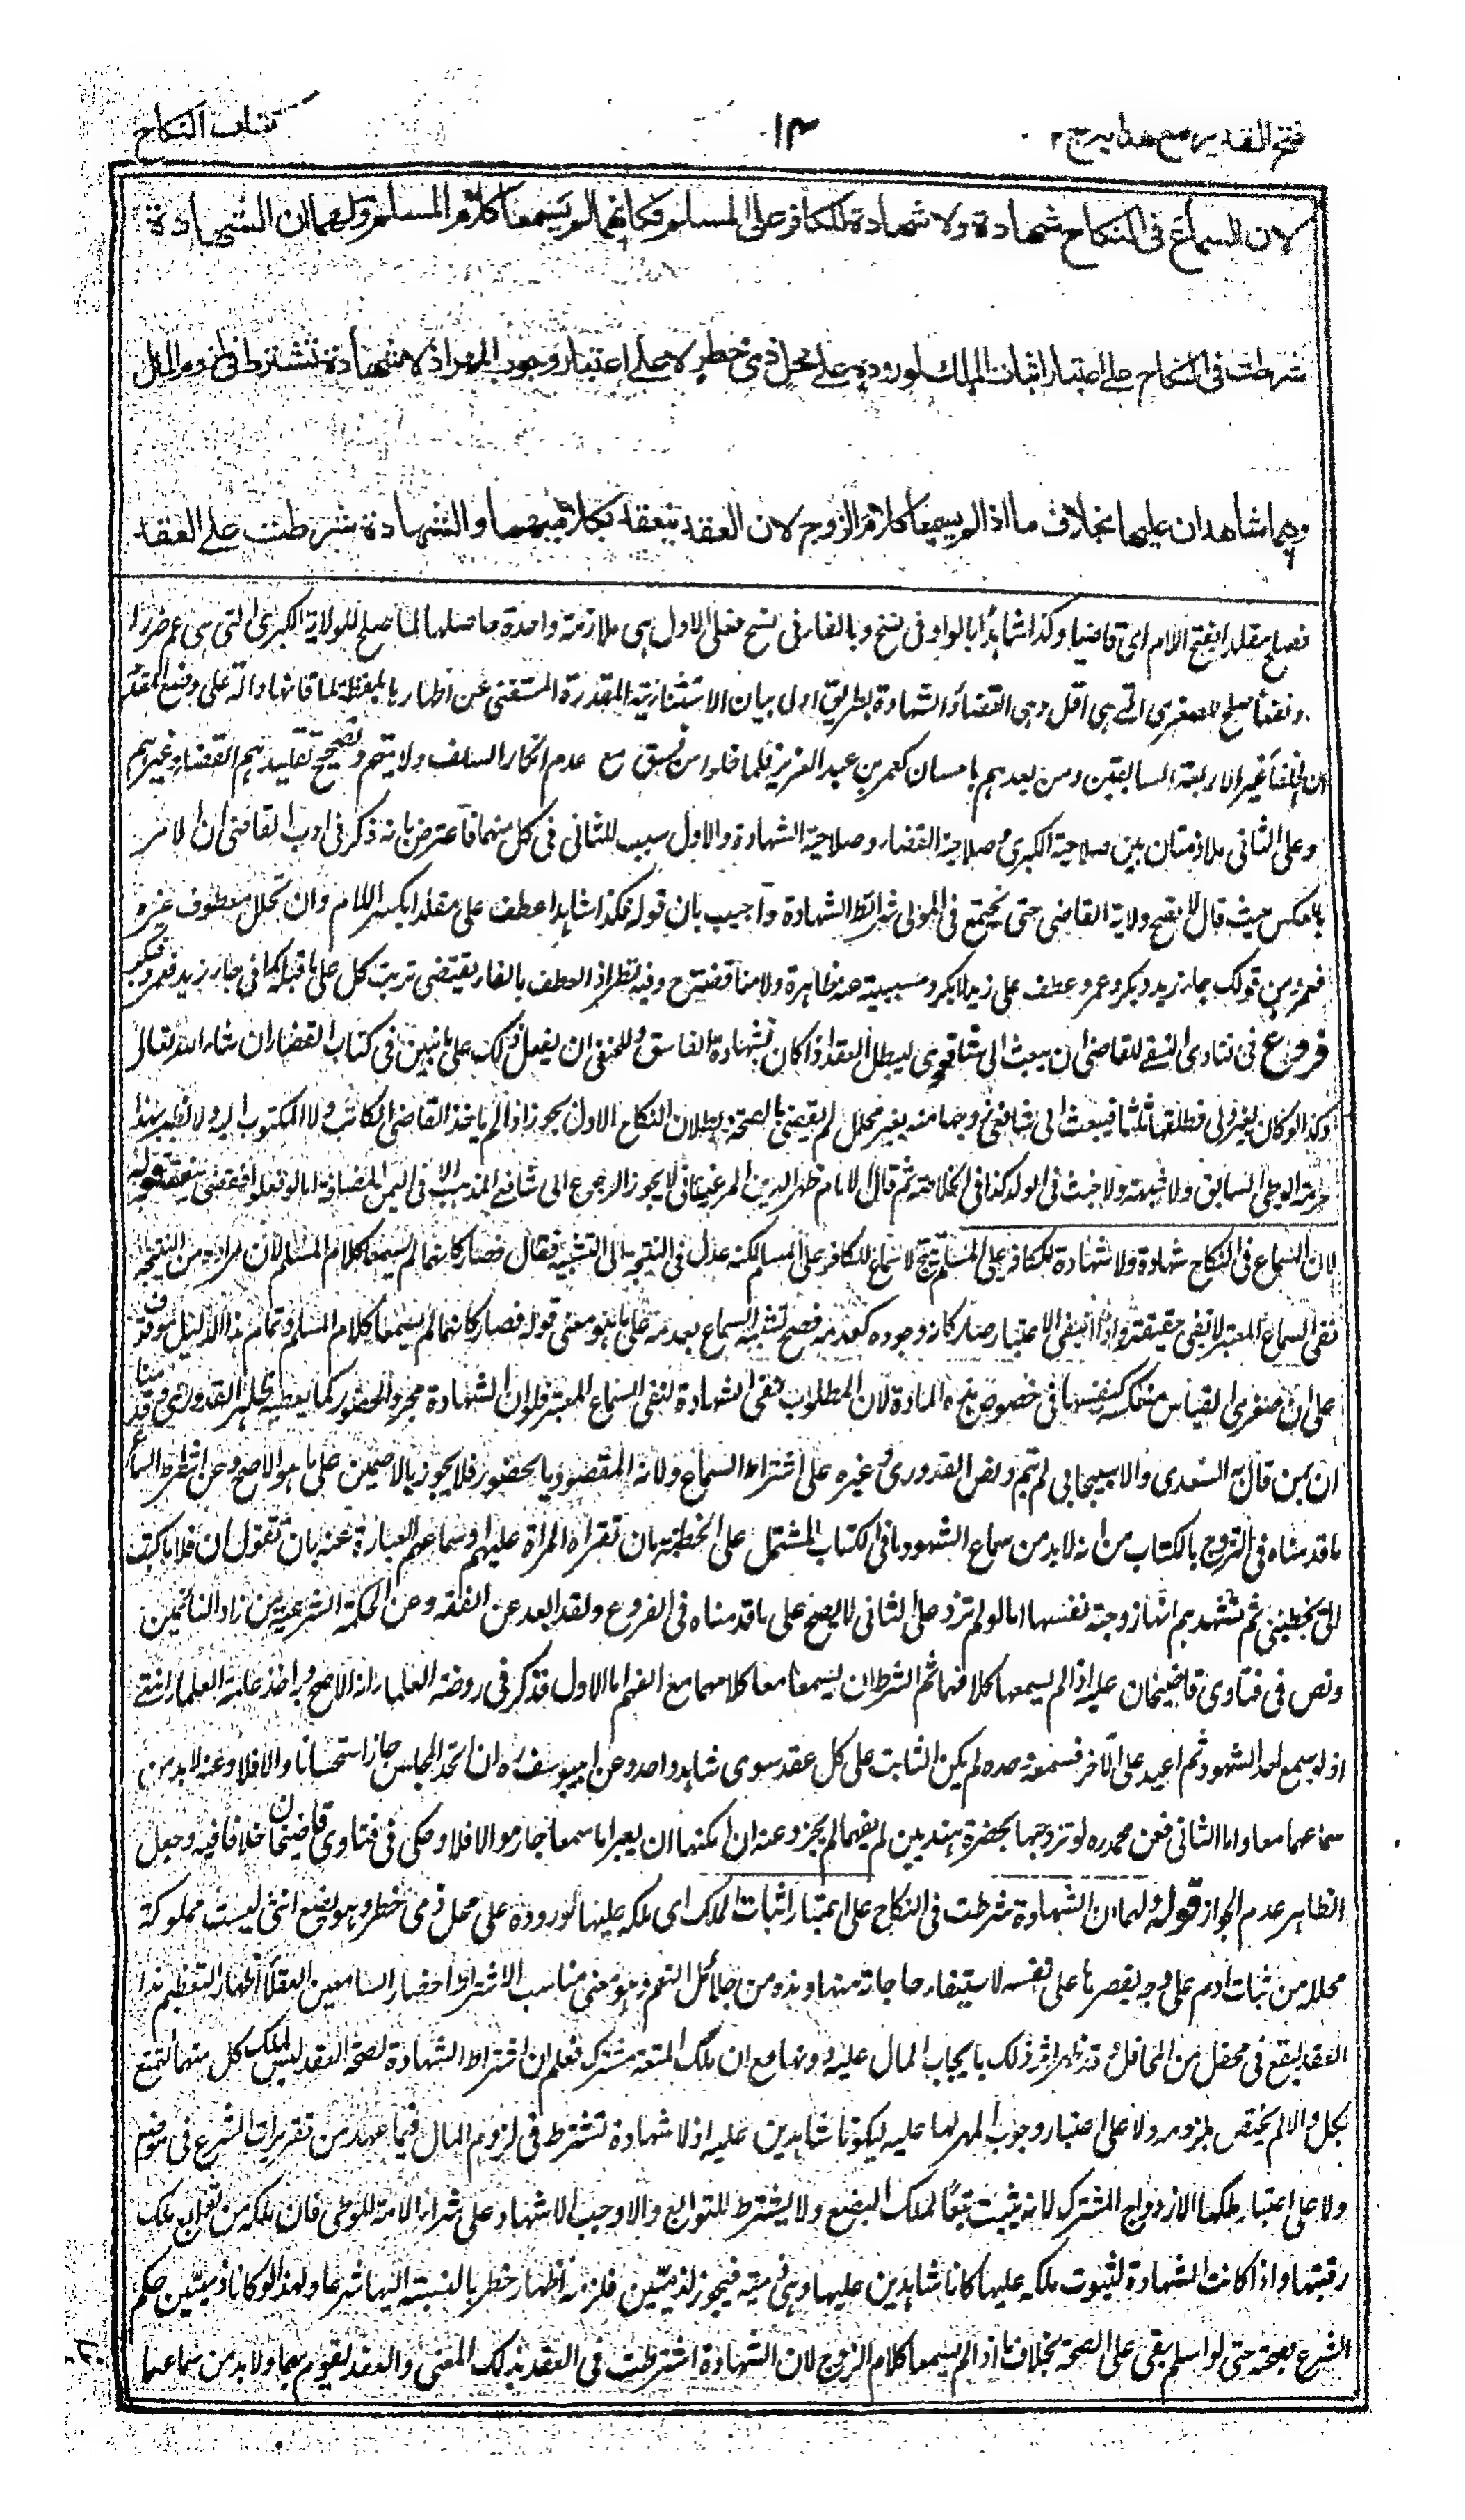 فتح القدير مع هدايه ج٢
١٤
كتاب النكاح
لان السماع في النكاح شهادة ولا شهادة للكافر على المسلم فكانهما لم يسمعا كلام المسلم ولهما ان الشهادة
شرطت في النكاح على اعتبار اثبات الملك لوروده على محل ذي خطر لا على اعتبار وجوب المهر اذ لا شهادة تشترط في لزوم المال
وهما شاهدان عليها بخلاف ما اذا لم يسمعا كلام الزوج لان العقد ينعقد بكلاميهما والشهادة شرطت على العقد
فصلح مقلدا بفتح اللام اى قاضيا وكذا شاهدا بالواو فى نسخ وبالفاء فى نسخ فعلى الاول هى ملازمة واحدة حاصلها لما صلح للولاية الكبرى التى هى اعم ضررا
ونفعا صلح للصغرى التى هى اقل وهى القضاء والشهادة بطريق اولى بيان الاستثنائية المقدرة المستغنى عن اظهارها بلفظة لما فانها دالة على وضع المقدم
ان الخلفاء غير الاربعة السابقين ومن بعدهم باحسان كعمر بن عبد العزيز قلما خلوا من فسق مع عدم انكار السلف ولايتهم وتصحيح تقليدهم القضاء وغيرهم
وعلى الثانى ملازمتان بين صلاحية الكبرى وصلاحية القضاء وصلاحية الشهادة والاول سبب للثانى فى كل منهما فاعترض بانه ذكر فى ادب القاضى ان الامر
بالعكس حيث قال لا تصح ولاية القاضى حتى يجتمع فى المولى شرائط الشهادة واجيب بان قوله فكذا شاهدا عطف على مقلدا بكسر اللام وان تخلل معطوف غيره
فهو من قولك جاء زيد وبكر وعمرو عطف على زيد لا بكر ومسببية عنه ظاهرة ولا مناقضة ح وفيه نظر اذ العطف بالفاء يقتضى ترتب كل على ما قبله كما فى جاء زيد فعمرو فبكر
فروع فى فتاوى النسفى للقاضى ان يبعث الى شافعى ليبطل العقد اذا كان بشهادة الفاسق وللحنفى ان يفعل ذلك على ما نبين فى كتاب القضاء ان شاء الله تعالى
وكذا لو كان بغير ولى فطلقها ثلثا فيبعث الى شافعى يزوجها منه بغير محلل ثم يقضى بالصحة وبطلان النكاح الاول يجوز اذا لم ياخذ القاضى الكاتب ولا المكتوب اليه ولا يظهر بهذا
حرمة الوطى السابق ولا شبهة ولا خبث فى الولد كذا فى الخلاصة ثم قال الامام ظهير الدين المرغينانى لا يجوز الرجوع الى شافعى المذهب الا فى اليمين المضافة اما لو فعلوا فقضى ينفذ قوله
لان السماع فى النكاح شهادة ولا شهادة للكافر على المسلم ينتج لا سماع للكافر على المسلم لكنه عدل فى النتيجة الى التشبيه فقال فصار كانهما لم يسمعا كلام المسلم لان مراده من النتيجة
نفى السماع المعتبر لا نفى حقيقته واذا انتفى الاعتبار صار كانه وجوده كعدمه فصح تشبيه السماع بعدمه على ما هو معنى قوله فصار كانهما لم يسمعا كلام المسلم وتمام هذا الدليل موقوف
على ان صغرى القياس منعكسة كنفسها فى خصوص هذه المادة لان المطلوب نفى الشهادة لنفى السماع المعتبر فلو ان الشهادة مجرد الحضور كما يعطيه ظاهر القدورى وقد منا
ان ممن قال به السغدى والاسبيجابى لم يتم ونص القدورى وغيره على اشتراط السماع ولانه المقصود بالحضور فلا يجوز بالاصمين على ما هو الاصح وعن اشتراط السماع
ما قدمناه فى التزوج بالكتاب من انه لا بد من سماع الشهود ما فى الكتاب المشتمل على الخطبة بان تقراه المراة عليهم او سماعهم العبارة عنه بان تقول ان فلانا كتب
الى يخطبنى ثم تشهدهم انها زوجته نفسها اما لو لم تزد على الثانى لا يصح على ما قدمناه فى الفروع ولقد ابعد عن الفقه وعن الحكمة الشرعية من زاد النائمين
ونص فى فتاوى قاضيخان عليه اذا لم يسمعا كلامهما ثم الشرط ان يسمعا معا كلامهما مع الفهم اما الاول فذكر فى روضة العلماء انه الاصح وبه اخذ عامة العلماء انتهى
اذ لو سمع احد الشهود ثم اعيد على الآخر فسمعه وحده لم يكن الثابت على كل عقد سوى شاهد واحد وعن ابى يوسف ره ان اتحد المجلس جاز استحسانا والا فلا وعنه لا بد من
سماعهما معا واما الثانى فعن محمد ره لو تزوجها بحضرة هنديين لم يفهما لم يجز وعنه ان امكنهما ان يعبرا ما سمعا جاز والا فلا وحكى فى فتاوى قاضيخان خلافا فيه وجعل
الظاهر عدم الجواز قوله ولهما ان الشهادة شرطت فى النكاح على اعتبار اثبات الملك اى ملكه عليها لوروده على محل ذى خطر وهو بضع انثى ليست مملوكة
محللة من بنات ادم على وجه يقصرها على نفسه لاستيفاء حاجاته منها وهذه من جلائل النعم وهو معنى مناسب لاشتراط احضار السامعين العقد اظهارا لتعظيم هذا
العقد ليقع فى محفل من المحافل وقد ظهر اثر ذلك بايجاب المال عليه دونها مع ان ملك المتعة مشترك فعلم ان اشتراط الشهادة لصحة العقد ليس لملك كل منهما التمتع
بكل والا لم يختص بلزومه ولا على اعتبار وجوب المهر لها عليه ليكونا شاهدين عليه اذ لا شهادة تشترط فى لزوم المال فيما عهد من تقريرات الشرع فى موضع
ولا على اعتبار ملكها الازدواج المشترك لانه يثبت تبعا لملك البضع ولا يشترط للتوابع والا وجب الاشهاد على شراء الامة للوطى فان ملكه من توابع ملك
رقبتها واذا كانت الشهادة لثبوت ملكه عليها كانا شاهدين عليها وهى ذمية فيجوز لذميين فلزمه اظهار خطر بالنسبة اليها شرعا ولهذا لو كانا ذميين حكم
الشرع بصحته حتى لو اسلم بقى على الصحة بخلاف ما اذا لم يسمعا كلام الزوج لان الشهادة اشترطت فى العقد لذلك المعنى والعقد يقوم بهما ولا بد من سماعهما